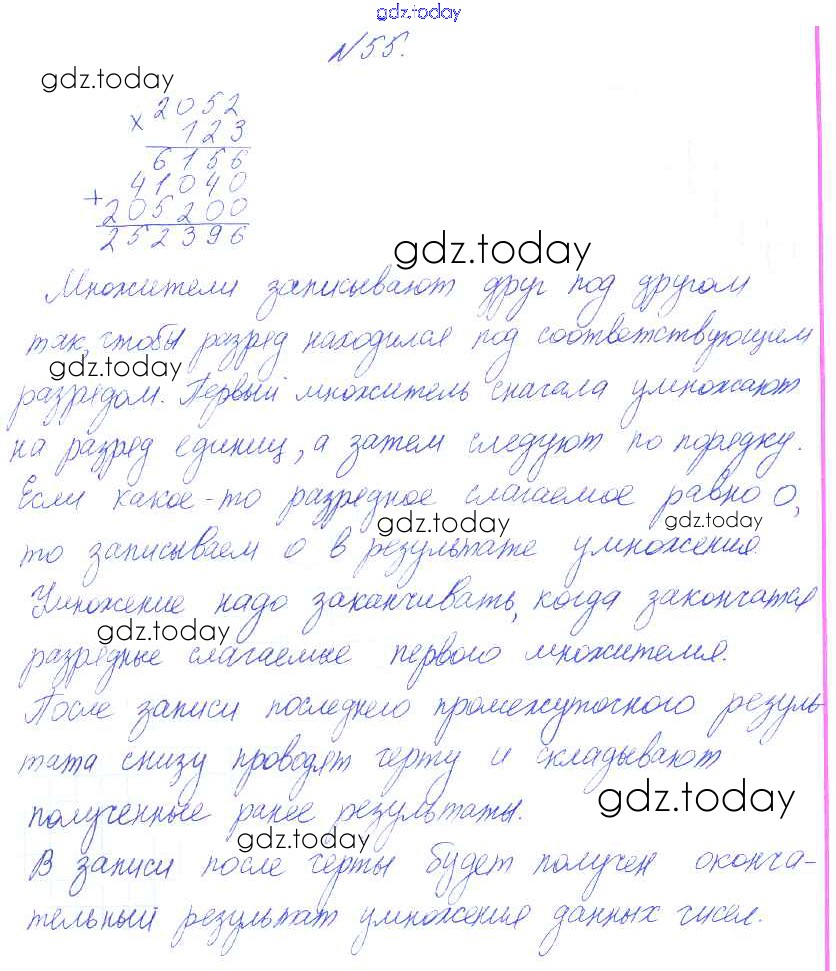 gdz.today
№55.
gdz.today
× 2052
123
6156
+ 41040
205200
252396
gdz.today
Множители записывают друг под другом
так, чтобы разряд находился под соответствующим
gdz.today
разрядом. Первый множитель сначала умножают
на разряд единиц, а затем следуют по порядку.
Если какое-то разрядное слагаемое равно 0,
gdz.today gdz.today
то записываем 0 в результате умножения
Умножение надо заканчивать, когда закончатся
gdz.today
разрядные слагаемые первого множителя.
После записи последнего промежуточного резуль-
тата снизу проводят черту и складывают
gdz.today
полученные ранее результаты.
gdz.today
В записи после черты будет получен оконча-
тельный результат умножения данных чисел.